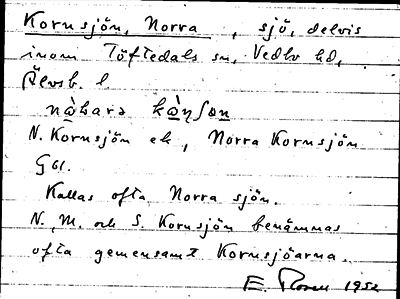 Kornsjön, Norra, sjö, delvis
inom Töftedals sn, Vedbo hd,
Älvsb. l
nò̱bara kò̱ṇʃən
N. Kornsjön ek, Norra Kornsjön
G 61.
Kallas ofta Norra sjön.
N., M. och S. Kornsjön benämnas
ofta gemensamt Kornsjöarna.
E Rosell 1952